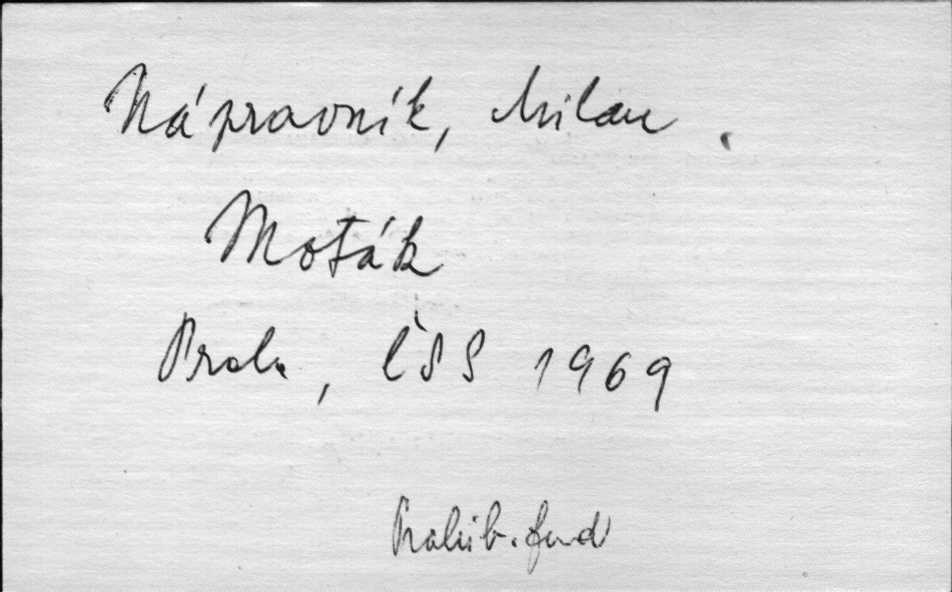 Nápravník, Milan.
Moták
Praha, ČSS 1969
Prohib. fond